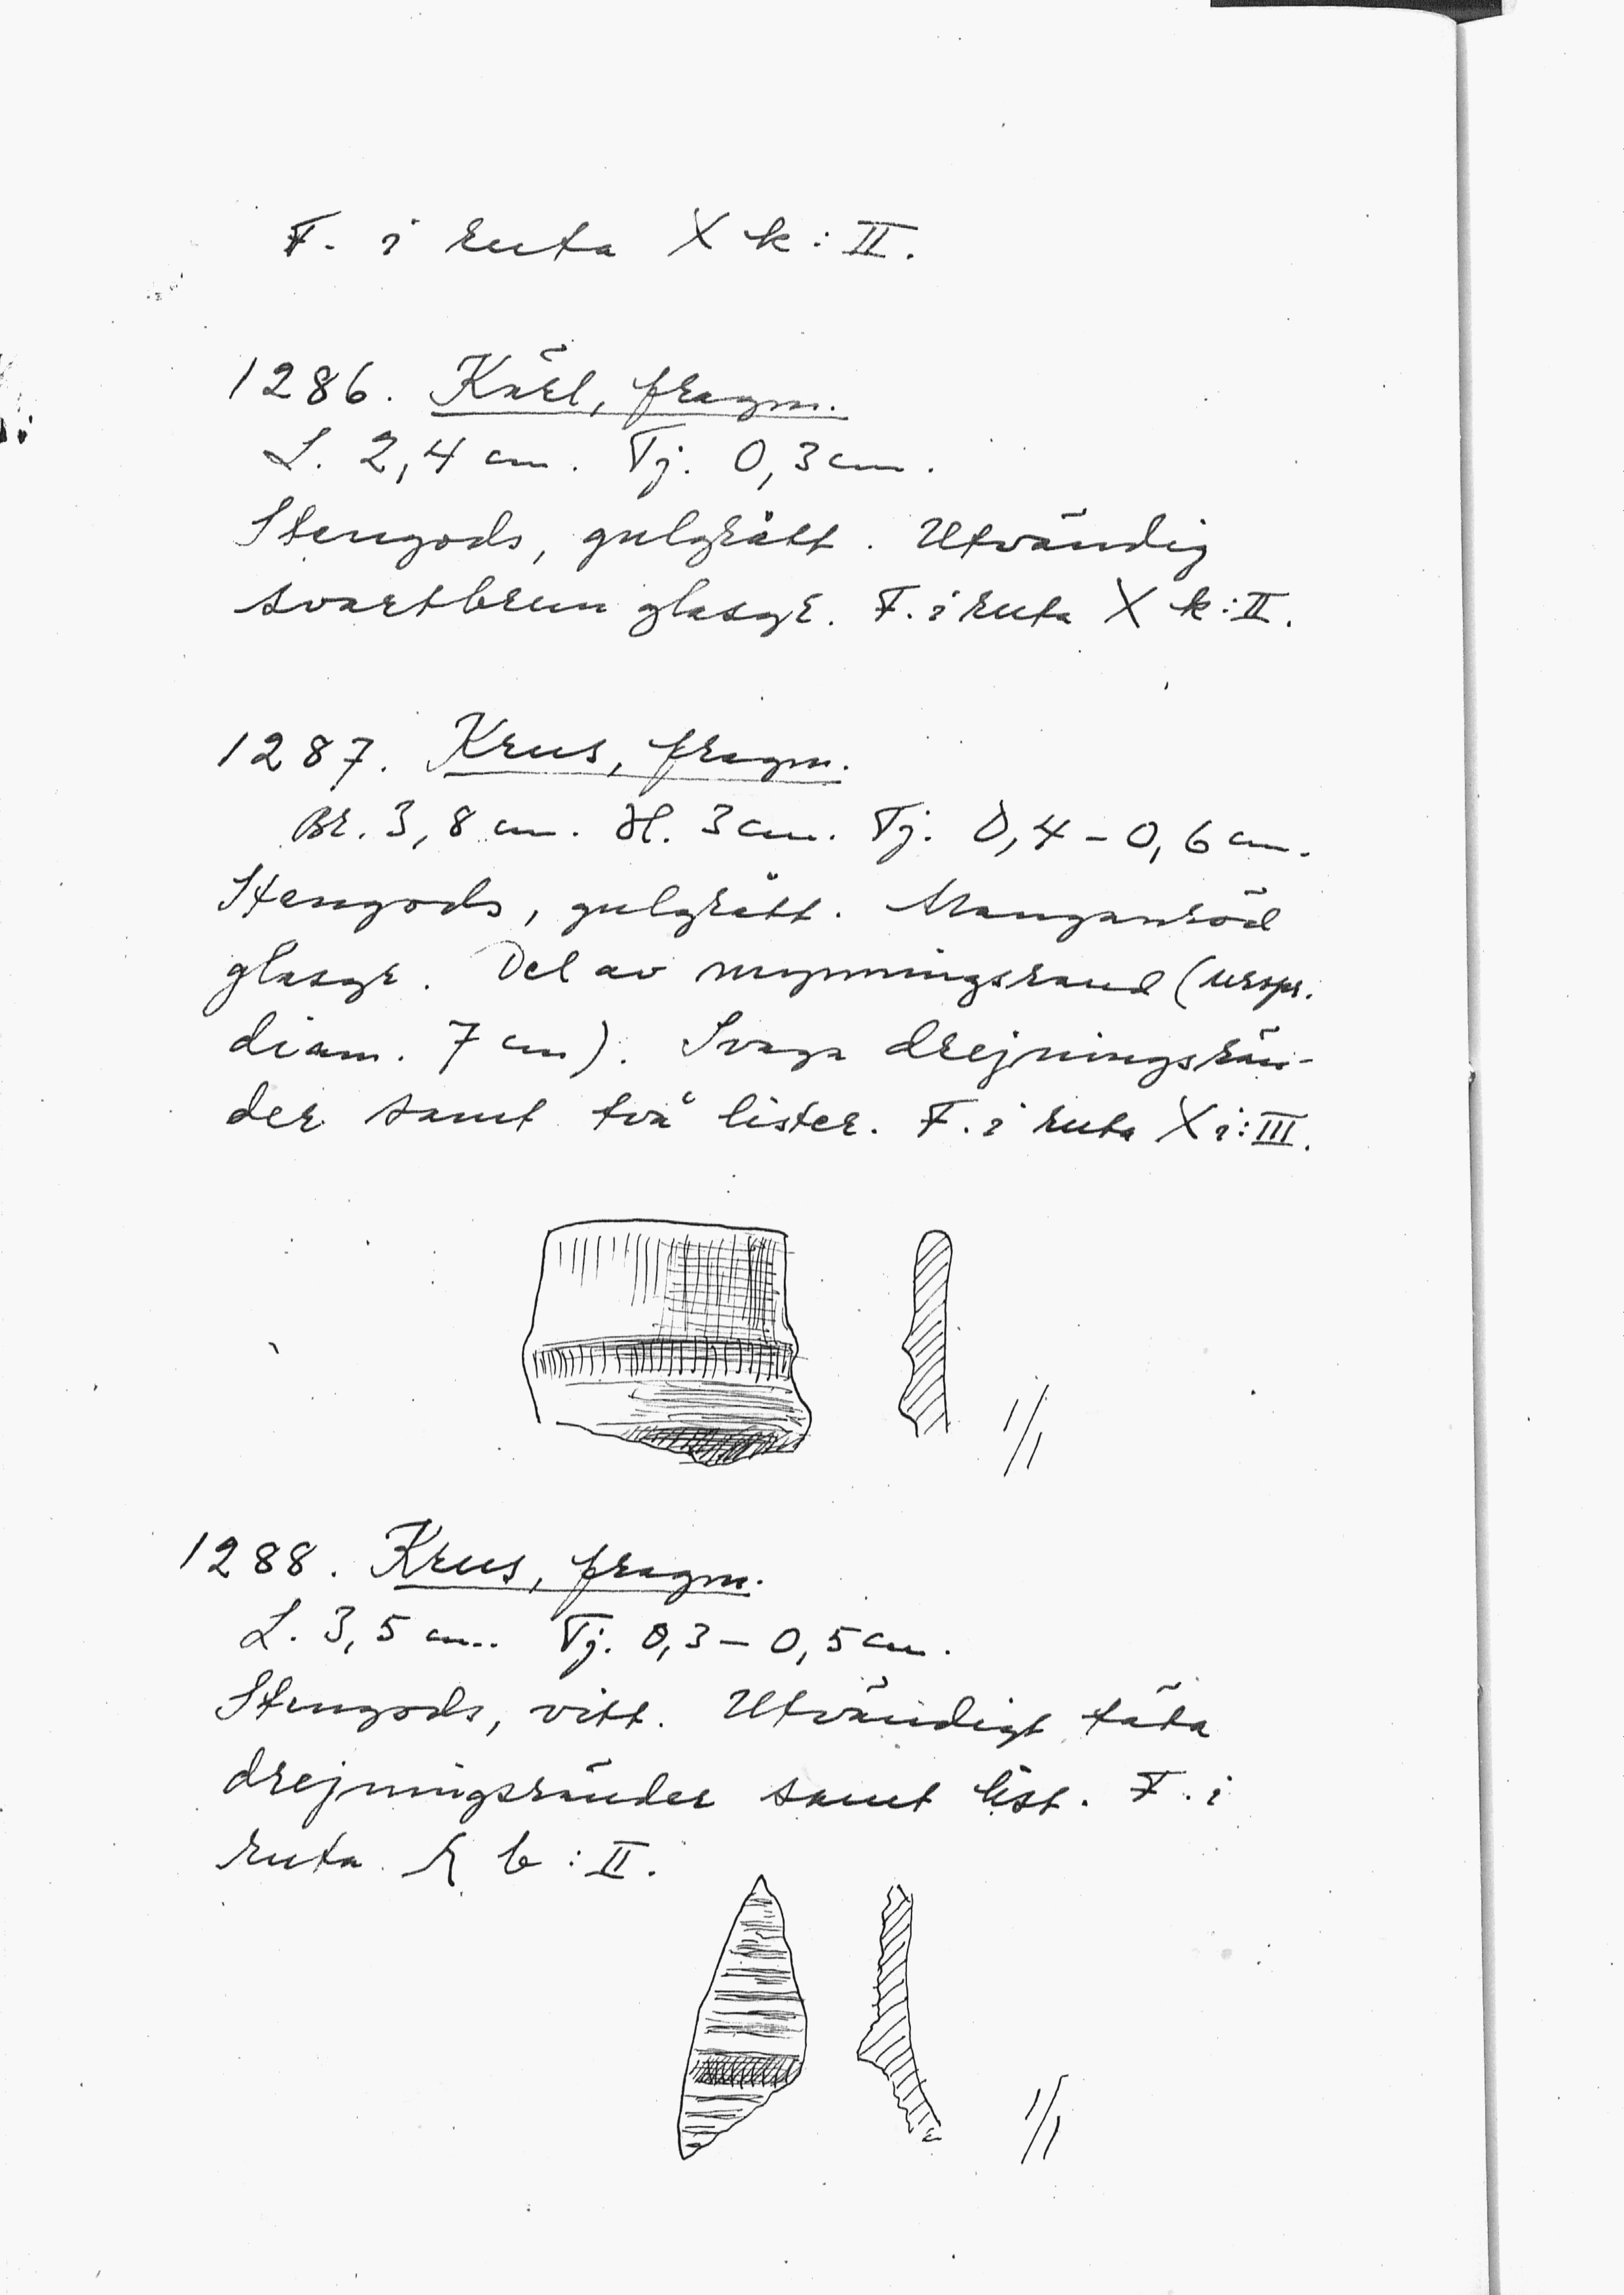 F. i ruta X k:II.
1286. Kärl, fragm.
L. 2,4 cm. Tj. 0,3 cm.
Stengods, gulgrått. Utvändig
svartbrun glasyr. F. i ruta X k:II.
1287. Krus, fragm.
Br. 3,8 cm. H. 3 cm. Tj. 0,4 – 0,6 cm.
Stengods, gulgrått. Manganröd
glasyr. Del av mynningsrand (urspr.
diam. 7 cm). Svaga drejningsrän-
der samt två lister. F. i ruta X i:III.
1/1
1288. Krus, fragm.
L. 3,5 cm. Tj. 0,3 – 0,5 cm.
Stengods, vitt. Utvändigt täta
drejningsränder samt list. F. i
ruta b:II.
1/1